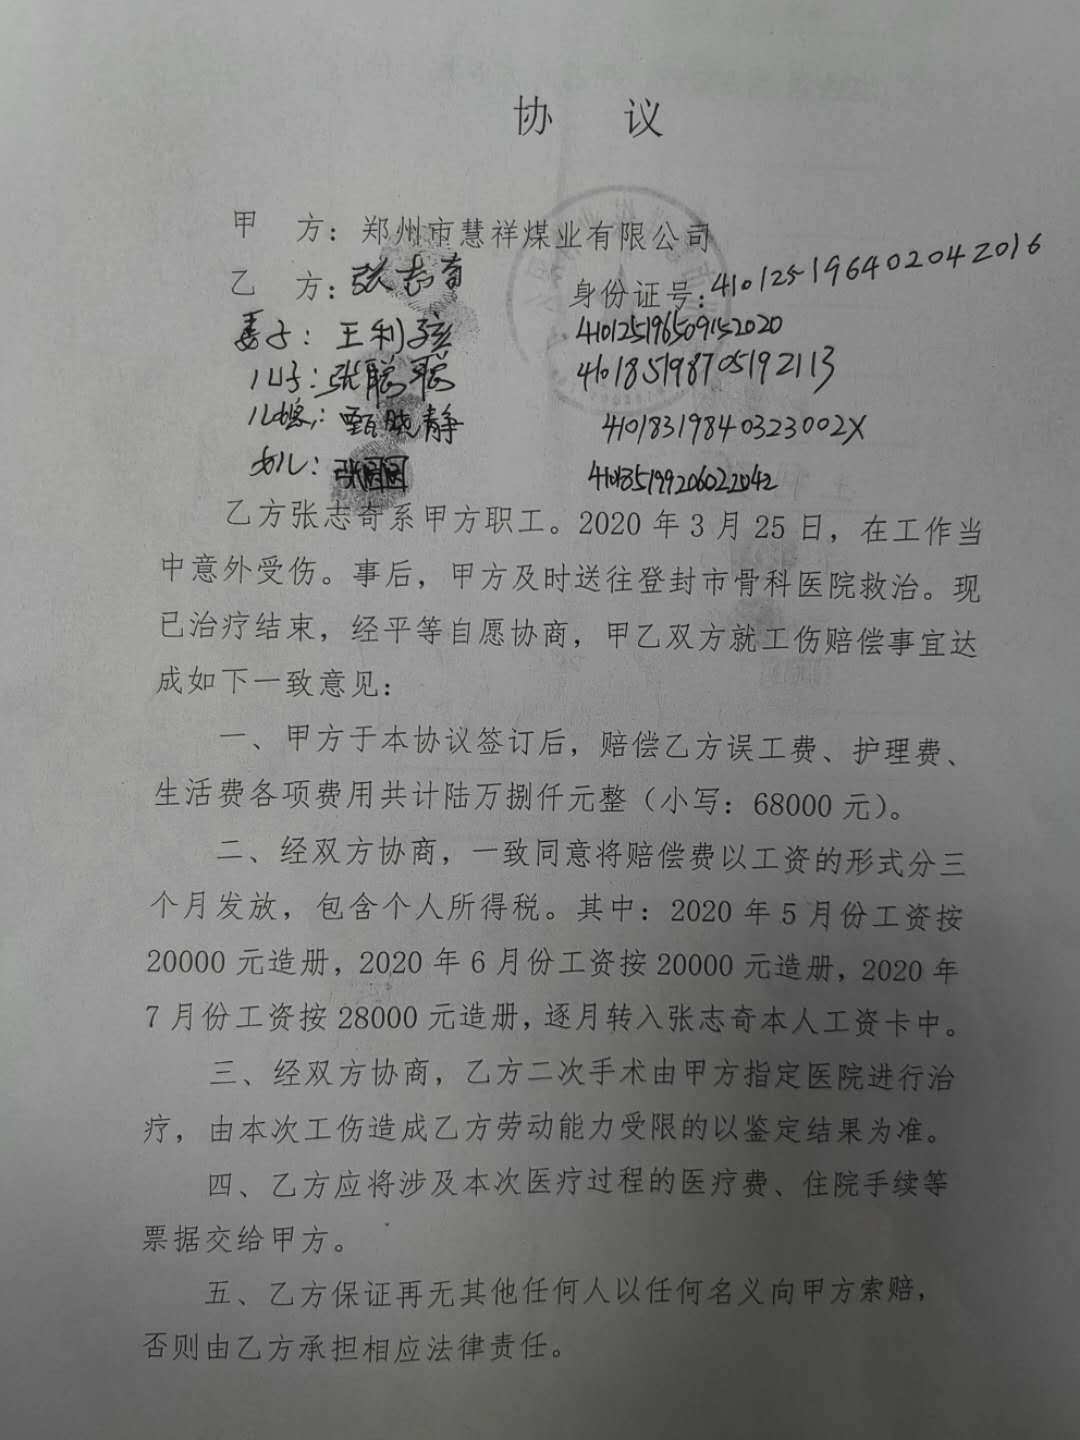 协 议
甲 方：郑州市慧祥煤业有限公司
乙 方：张志奇 身份证号：410125196402042016
妻子：王利孩 410125196509152020
儿子：张聪聪 410185198705192113
儿媳：甄晓静 41018319840323002X
女儿：张圆圆 410185199206022042
乙方张志奇系甲方职工。2020 年 3 月 25 日，在工作当
中意外受伤。事后，甲方及时送往登封市骨科医院救治。现
已治疗结束，经平等自愿协商，甲乙双方就工伤赔偿事宜达
成如下一致意见：
一、甲方于本协议签订后，赔偿乙方误工费、护理费、
生活费各项费用共计陆万捌仟元整（小写：68000 元）。
二、经双方协商，一致同意将赔偿费以工资的形式分三
个月发放，包含个人所得税。其中：2020 年 5 月份工资按
20000 元造册，2020 年 6 月份工资按 20000 元造册，2020 年
7 月份工资按 28000 元造册，逐月转入张志奇本人工资卡中。
三、经双方协商，乙方二次手术由甲方指定医院进行治
疗，由本次工伤造成乙方劳动能力受限的以鉴定结果为准。
四、乙方应将涉及本次医疗过程的医疗费、住院手续等
票据交给甲方。
五、乙方保证再无其他任何人以任何名义向甲方索赔，
否则由乙方承担相应法律责任。